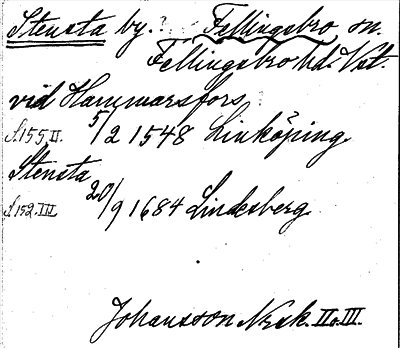 Stensta by. Fellingsbro sn.
Fellingsbro hd. Vstl.
vid Hammarsfors
S.155 II. 5/2 1548 Linköping
Stensta
S.152.III. 20/9 1684 Lindesberg
Johansson Norsk. II o. III.